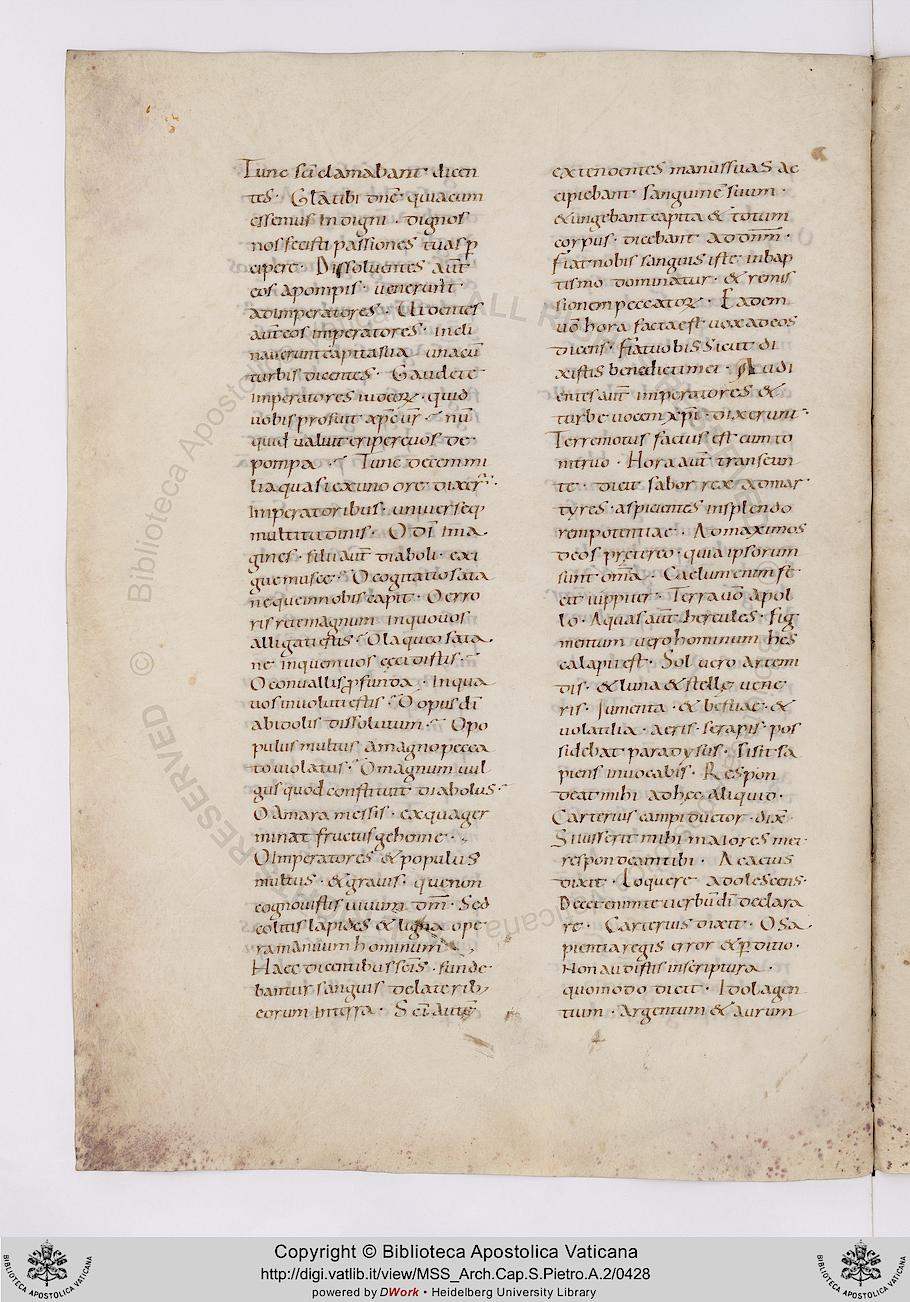 Tunc sci clamabant · dicen
tes · Gla tibi dne quia cum
essemus indigni · dignos
nos fecisti passiones tuas p
cipere · Dissoluentes aut
eos a pompis · uenerunt
ad imperatores · Uidentes
aut eos imperatores · incli
nauerunt capita sua · una cu
turbis dicentes · Gaudete
imperatores iudeoꝝ · quid
uobis profuit xpc ur · nu
quid ualuit eripere uos de
pompa · Tunc decem mi
lia quasi ex uno ore dixer ·
Imperatoribus · uniuerseq
multitudinis · O di ima
gines · filii aut diaboli · exi
gue musce · O cogitatio sata
ne que in nobis capit · O erro
ris rete magnum in quo uos
alligati estis · O laqueo sata
ne in quem uos cecidistis ·
O conuallis pfunda · in qua
uos inuoluti estis · O opus di
ab idolis dissolutum · O po
pulus multus a magno pecca
to uiolatus · O magnum uul
gus quod constituit diabolus ·
O amara messis · ex qua ger
minat fructus gehenne ·
O Imperatores & populus
multus · & grauis · que non
cognouistis uiuum dm · Sed
colitis lapides & ligna ope
ra manuum hominum
Haec dicentibus scis · funde
bantur sanguis de laterib;
eorum in terra · Sci aute
extendentes manus suas ac
cipiebant sanguine suum ·
& ungebant capita & totum
corpus · dicebant ad dnm ·
Fiat nobis sanguis iste in bap
tismo dominatur · & remis
sionem peccatoꝝ · Eadem
uo hora facta est uox ad eos
dicens · fiat uobis sicut di
xistis benedicti mei · Audi
entes aut imperatores &
turbe uocem xpi · dixerunt ·
Terremotus factus est cum to
nitruo · Hora aut transeun
te · dicit sabor rex ad mar
tyres · aspicientes in splendo
rem potentiae · Ad maximos
deos pretereo · quia ipsorum
sunt oma · Caelum enim fe
cit iuppiter · Terra uo apol
lo · Aquas aut hercules · Fig
mentum uero hominum hes
calapii est · Sol uero artemi
dis · & luna & stelle uene
ris · Iumenta · & bestiae · &
uolatilia · aeris · serapis · pos
sidebat paradysus · Iisit sa
piens inuocabis · Respon
deat mihi ad hec aliquid ·
Carterius campiductor · dix
Si iusserit mihi maiores mei
respondeam tibi · Acacius
dixit · Loquere adolescens ·
Decet enim te uerbu di declara
re · Carterius dixit · O sa
pientia regis error & pditio ·
Non audistis in scriptura ·
quomodo dicit · Idola gen
tium · Argentum & aurum
© Biblioteca Apostolica Vaticana ALL RIGHTS RESERVED
Copyright © Biblioteca Apostolica Vaticana
http://digi.vatlib.it/view/MSS_Arch.Cap.S.Pietro.A.2/0428
powered by DWork • Heidelberg University Library
BIBLIOTECA APOSTOLICA VATICANA
BIBLIOTECA APOSTOLICA VATICANA